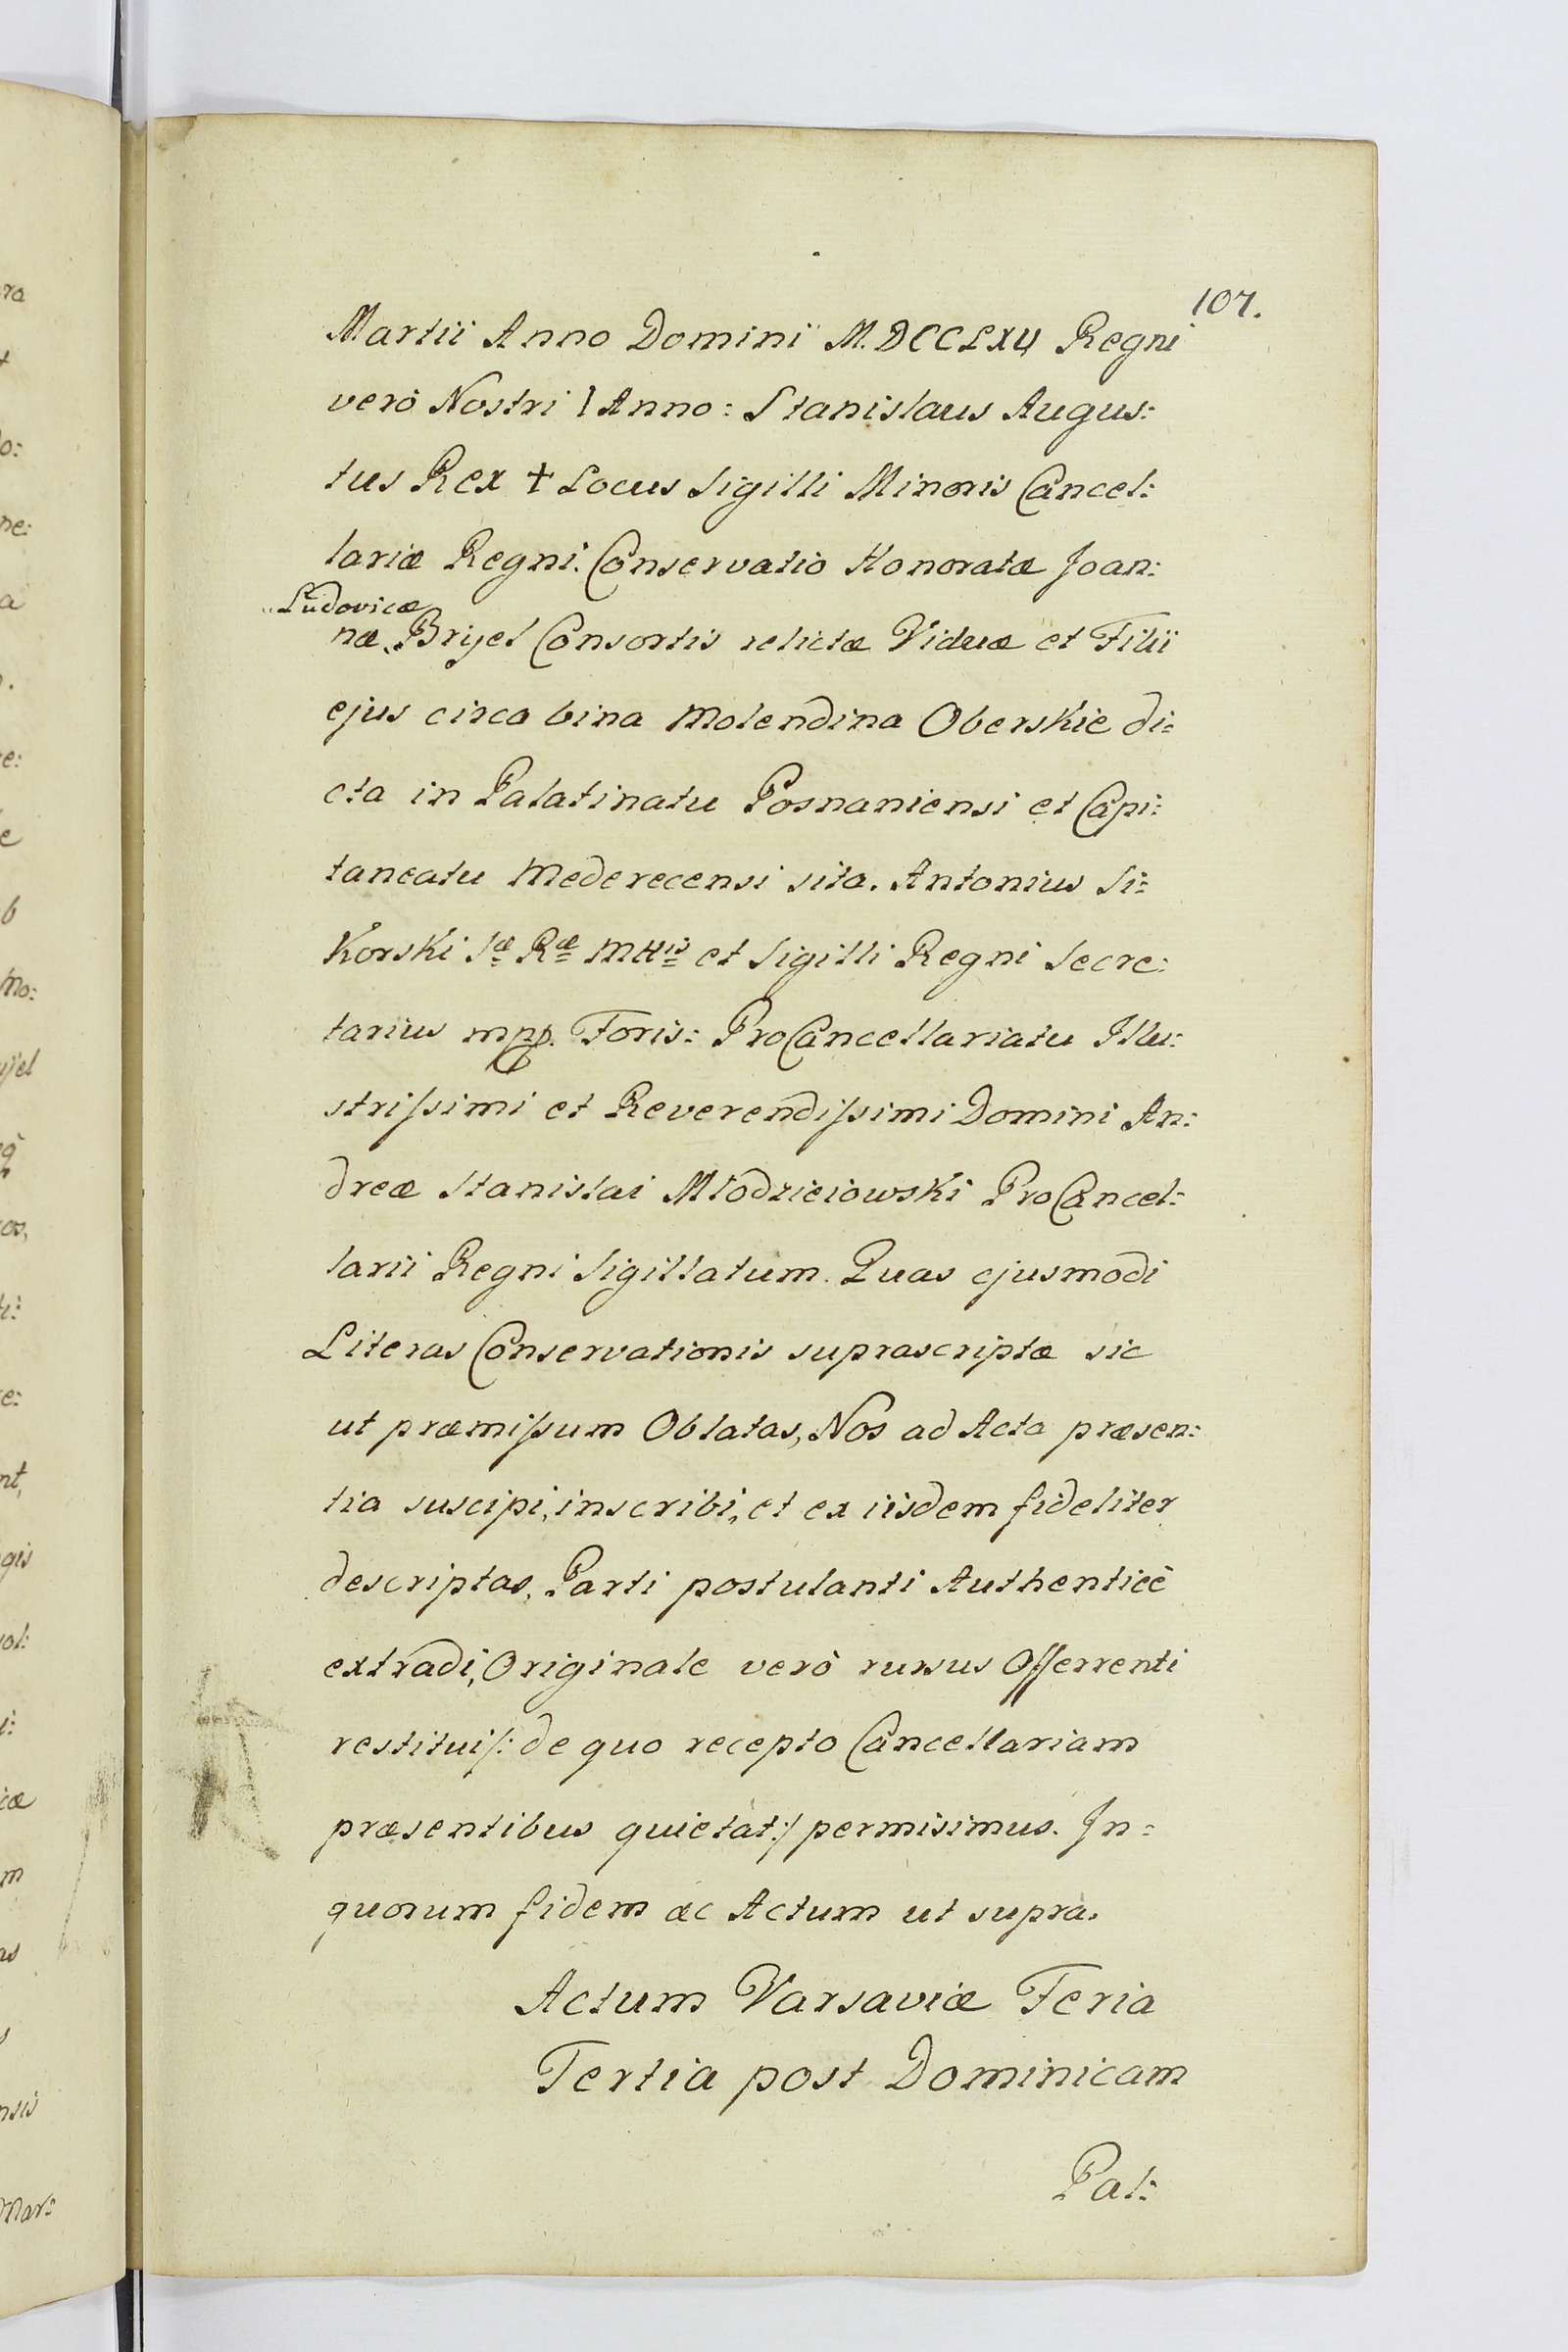 107.
Martii Anno Domini M.DCCLXV Regni
verò Nostri I Anno: Stanislaus Augus:
tus Rex † Locus Sigilli Minoris Cancel:
lariæ Regni. Conservatio Honoratæ Joan:
Ludovicæ
næ Brijel Consortis relictæ Viduæ et Filii
ejus circa bina Molendina Oberskie di:
cta in Palatinatu Posnaniensi et Capi:
taneatu Mederecensi sita. Antonius Si:
Korski Sæ Ræ Mttis et Sigilli Regni Secre:
tarius mpp. Foris: ProCancellariatu Illu:
strissimi et Reverendissimi Domini An:
dreæ Stanislai Młodzieiowski ProCancel:
larii Regni Sigillatum. Quas ejusmodi
Literas Conservationis suprascriptæ sic
ut præmissum Oblatas, Nos ad Acta præsen:
tia suscipi, inscribi, et ex iisdem fideliter
descriptas, Parti postulanti Authenticè
extradi, Originale verò rursus Offerrenti
restitui /: de quo recepto Cancellariam
præsentibus quietat :/ permisimus. In:
quorum fidem ac Actum ut supra.
Actum Varsaviæ Feria
Tertia post Dominicam
Pal: